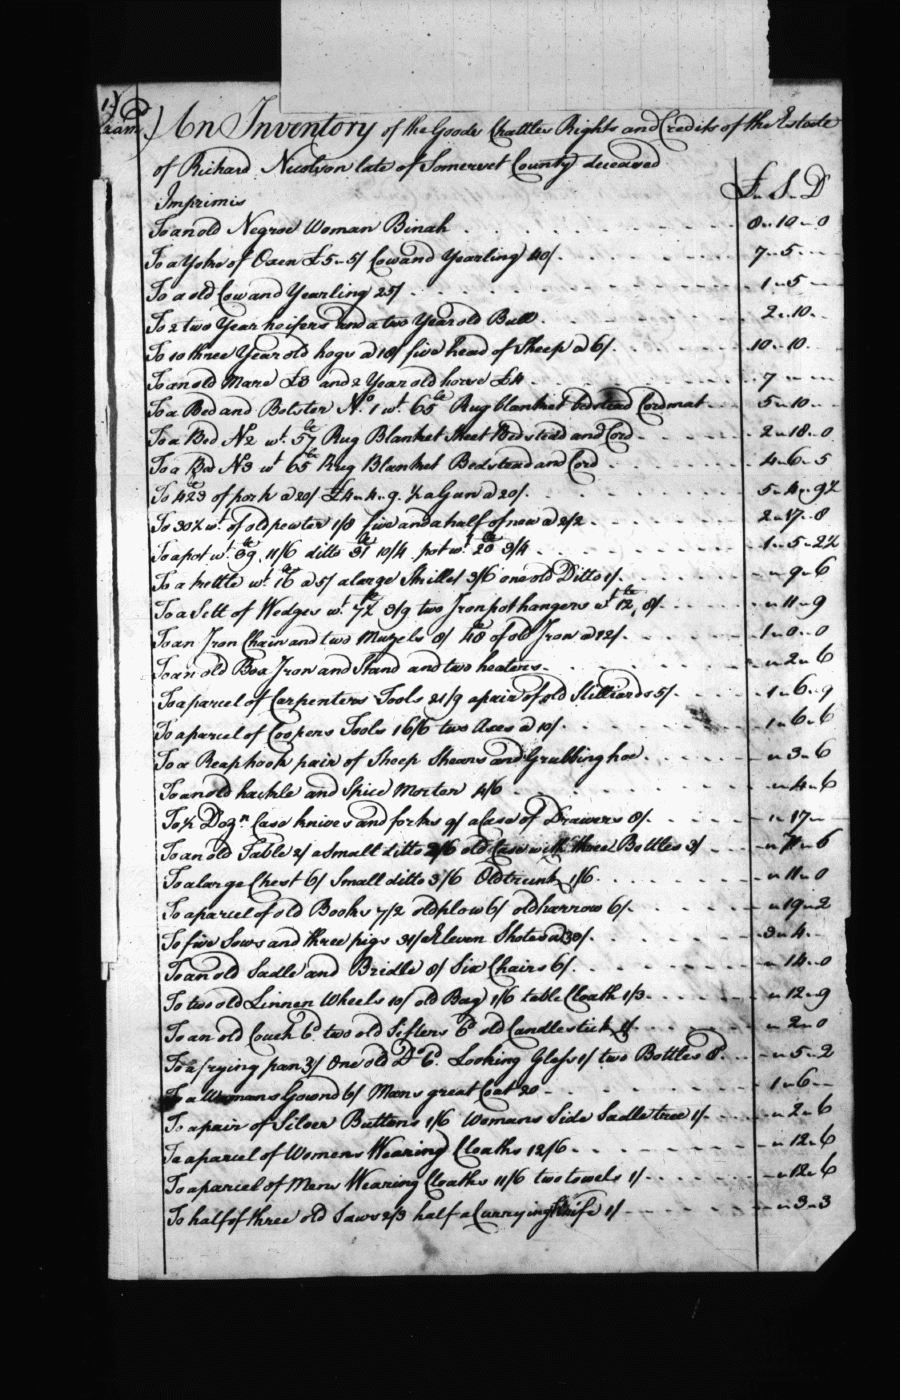 An Inventory of the Goods Chattles Rights and Credits of the Estate
of Richard Nicolson late of Somerset County deceased
£ S D
Imprimis
To an old Negroe Woman Binah 8 10 0
To a Yoke of Oxen £5 5/ Cow and Yearling 40/ 7 5
To a old Cow and Yearling 25/ 1 5
To 2 two Year heifers and a two Year old Bull 2 10
To 10 three Year old hogs a 18/ five head of Sheep a 6/ 10 10
To an old Mare £3 and 2 Year old horse £4 7
To a Bed and Bolster No. 1 wt. 65 lb Rug blanket bedstead Cord mat 5 10
To a Bed No 2 wt. 57 lb Rug Blanket Sheet Bedstead and Cord 2 18 0
To a Bed No 3 wt 65 lb Rug Blanket Bedstead and Cord 4 6 5
To 423 lb of pork a 20/ £4 4 9 1/2 a Gun a 20/ 5 4 9 1/2
To 30 1/2 wt. of old pewter 1/8 five and a half of new a 2/2 2 17 8
To a pot wt. 39 lb 11/6 ditto 31 lb 10/4 pot wt. 28 lb 3/4 1 5 2 1/2
To a kettle wt. 16 lb a 5/ a large Skillet 3/6 one old Ditto 1/ 9 6
To a Sett of Wedges wt. 7 1/2 lb 3/9 two Iron pot hangers wt 12 lb, 8/ 11 9
To an Iron Chain and two Muzels 8/ 48 lb of old Iron a 12/ 1 0 0
To an old Box Iron and Stand and two heaters 2 6
To a parcel of Carpenters Tools 21/9 a pair of old Stilliards 5/ 1 6 9
To a parcel of Coopers Tools 16/6 two Axes a 10/ 1 6 6
To a Reaphook pair of Sheep Shears and Grubbing hoe 3 6
To an old hackle and Spice Morter 4/6 4 6
To 1/2 Dozn. Case knives and forks 9/ a Case of Drawers 8/ 17
To an old Table 2/ a Small ditto 2/6 old Case with three Bottles 3/ 7 6
To a large Chest 6/ Small ditto 3/6 Old trunk 1/6 11 0
To a parcel of old Books 7/2 old plow 6/ old harrow 6/ 19 2
To five Sows and three pigs 34/ Eleven Shotes a 30/ 3 4
To an old Sadle and Bridle 8/ Six Chairs 6/ 14 0
To two old Linnen Wheels 10/ old Bag 1/6 table Cloath 1/3 12 9
To an old Couch 6d. two old Sifters 6d old Candlestick 1/ 2 0
To a frying pan 3/ One old Do 6d. Looking Glass 1/ two Bottles 8d. 5 2
To a Womans Gownd 6/ Mans great Coat 20 1 6
To a pair of Silver Buttons 1/6 Womans Side Sadle tree 1/ 2 6
To a parcel of Womens Wearing Cloaths 12/6 12 6
To a parcel of Mens Wearing Cloaths 11/6 two towels 1/ 12 6
To half of three old Saws 2/3 half a Currying knife 1/ 3 3